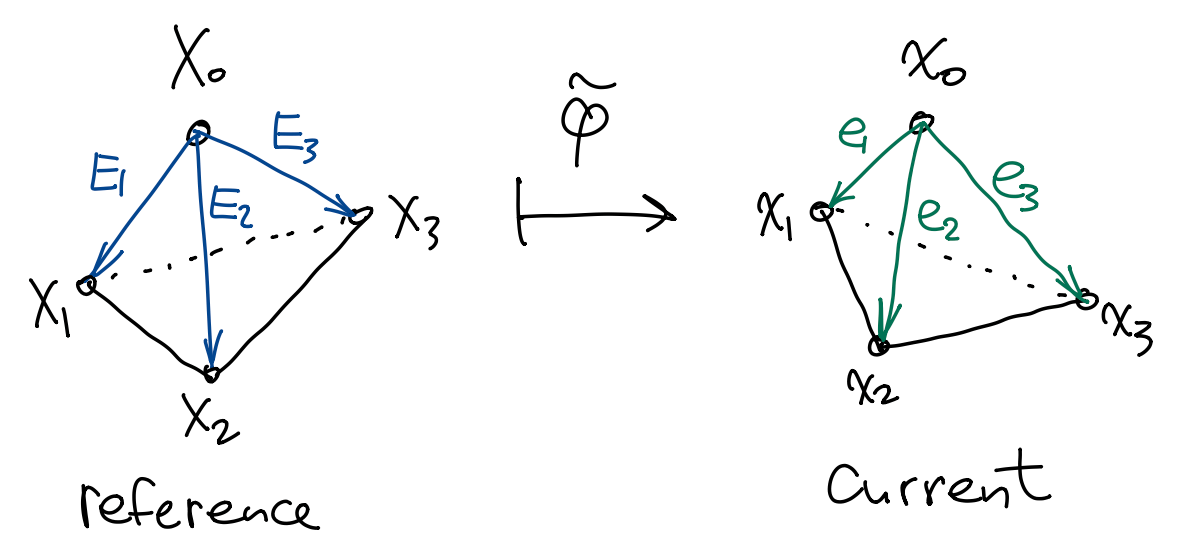 X₀
E₁
E₂
E₃
X₁
X₂
X₃
reference
φ̃
x₀
e₁
e₂
e₃
x₁
x₂
x₃
Current